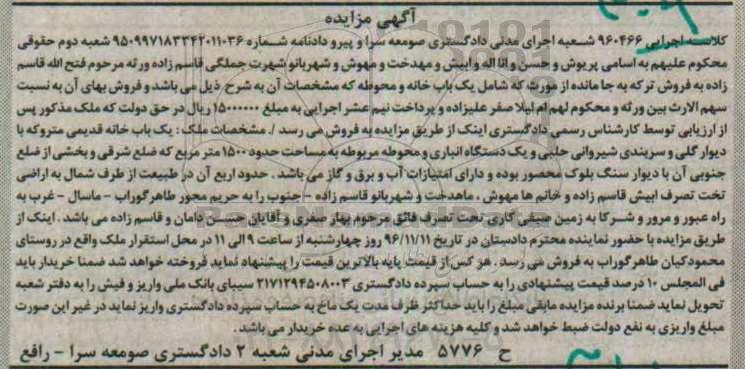 آگهی مزایده
کلاسه اجرایی ۹۶۰۴۶۶ شعبه اجرای مدنی دادگستری صومعه سرا و پیرو دادنامه شماره ۹۵۰۹۹۷۱۸۳۳۴۲۰۱۱۰۳۶ شعبه دوم حقوقی
محکوم علیهم به اسامی پریوش و حسن و اناله و ابیش و مهدخت و مهوش و شهربانو شهرت جملگی قاسم زاده ورثه مرحوم فتح الله قاسم
زاده به فروش ترکه به جا مانده از مورث که شامل یک باب خانه و محوطه که مشخصات آن به شرح ذیل می باشد و فروش بهای آن به نسبت
سهم الارث بین ورثه و محکوم لهم ام لیلا صفر علیزاده و پرداخت نیم عشر اجرایی به مبلغ ۱۵۰۰۰۰۰۰ ریال در حق دولت که ملک مذکور پس
از ارزیابی توسط کارشناس رسمی دادگستری اینک از طریق مزایده به فروش می رسد /. مشخصات ملک : یک باب خانه قدیمی متروکه با
دیوار گلی و سربندی شیروانی حلبی و یک دستگاه انباری و محوطه مربوطه به مساحت حدود ۱۵۰۰ متر مربع که ضلع شرقی و بخشی از ضلع
جنوبی آن با دیوار سنگ بلوک محصور بوده و دارای امتیازات آب و برق و گاز می باشد . حدود اربع آن در طبیعت از طرف شمال به اراضی
تخت تصرف ابیش قاسم زاده و خانم ها مهوش ، ماهدخت و شهربانو قاسم زاده - جنوب را به حریم محور طاهرگوراب - ماسال - غرب به
راه عبور و مرور و شرکا به زمین صیفی کاری تحت تصرف فائق مرحوم بهار صفری و آقایان حسن دامان و قاسم زاده می باشد . اینک از
طریق مزایده با حضور نماینده محترم دادستان در تاریخ ۹۶/۱۱/۱۱ روز چهارشنبه از ساعت ۹ الی ۱۱ در محل استقرار ملک واقع در روستای
محمودکیان طاهرگوراب به فروش می رسد . هر کس از قیمت پایه بالاترین قیمت را پیشنهاد نماید فروخته خواهد شد ضمنا خریدار باید
فی المجلس ۱۰ درصد قیمت پیشنهادی را به حساب سپرده دادگستری ۲۱۷۱۲۹۴۵۰۸۰۰۳ سیبای بانک ملی واریز و فیش را به دفتر شعبه
تحویل نماید ضمنا برنده مزایده مابقی مبلغ را باید حداکثر ظرف مدت یک ماخ به حساب سپرده دادگستری واریز نماید در غیر این صورت
مبلغ واریزی به نفع دولت ضبط خواهد شد و کلیه هزینه های اجرایی به عده خریدار می باشد .
ح ۵۷۷۶ مدیر اجرای مدنی شعبه ۲ دادگستری صومعه سرا - رافع